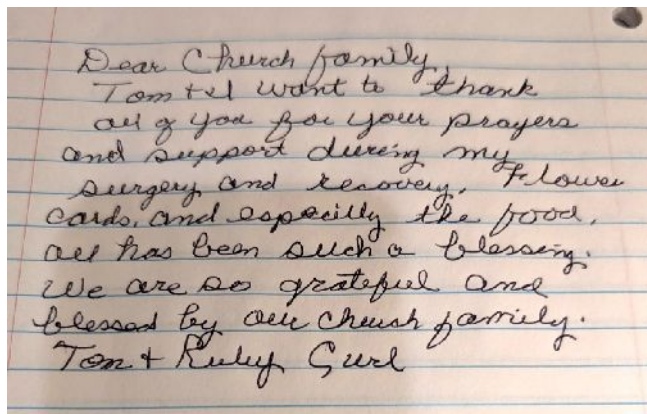 Dear Church family,
Tom + I want to thank
all of you for your prayers
and support during my
surgery and recovery. Flower
cards, and especilly the food,
all has been such a blessing.
We are so grateful and
blessed by our church family.
Tom + Ruby Gurl